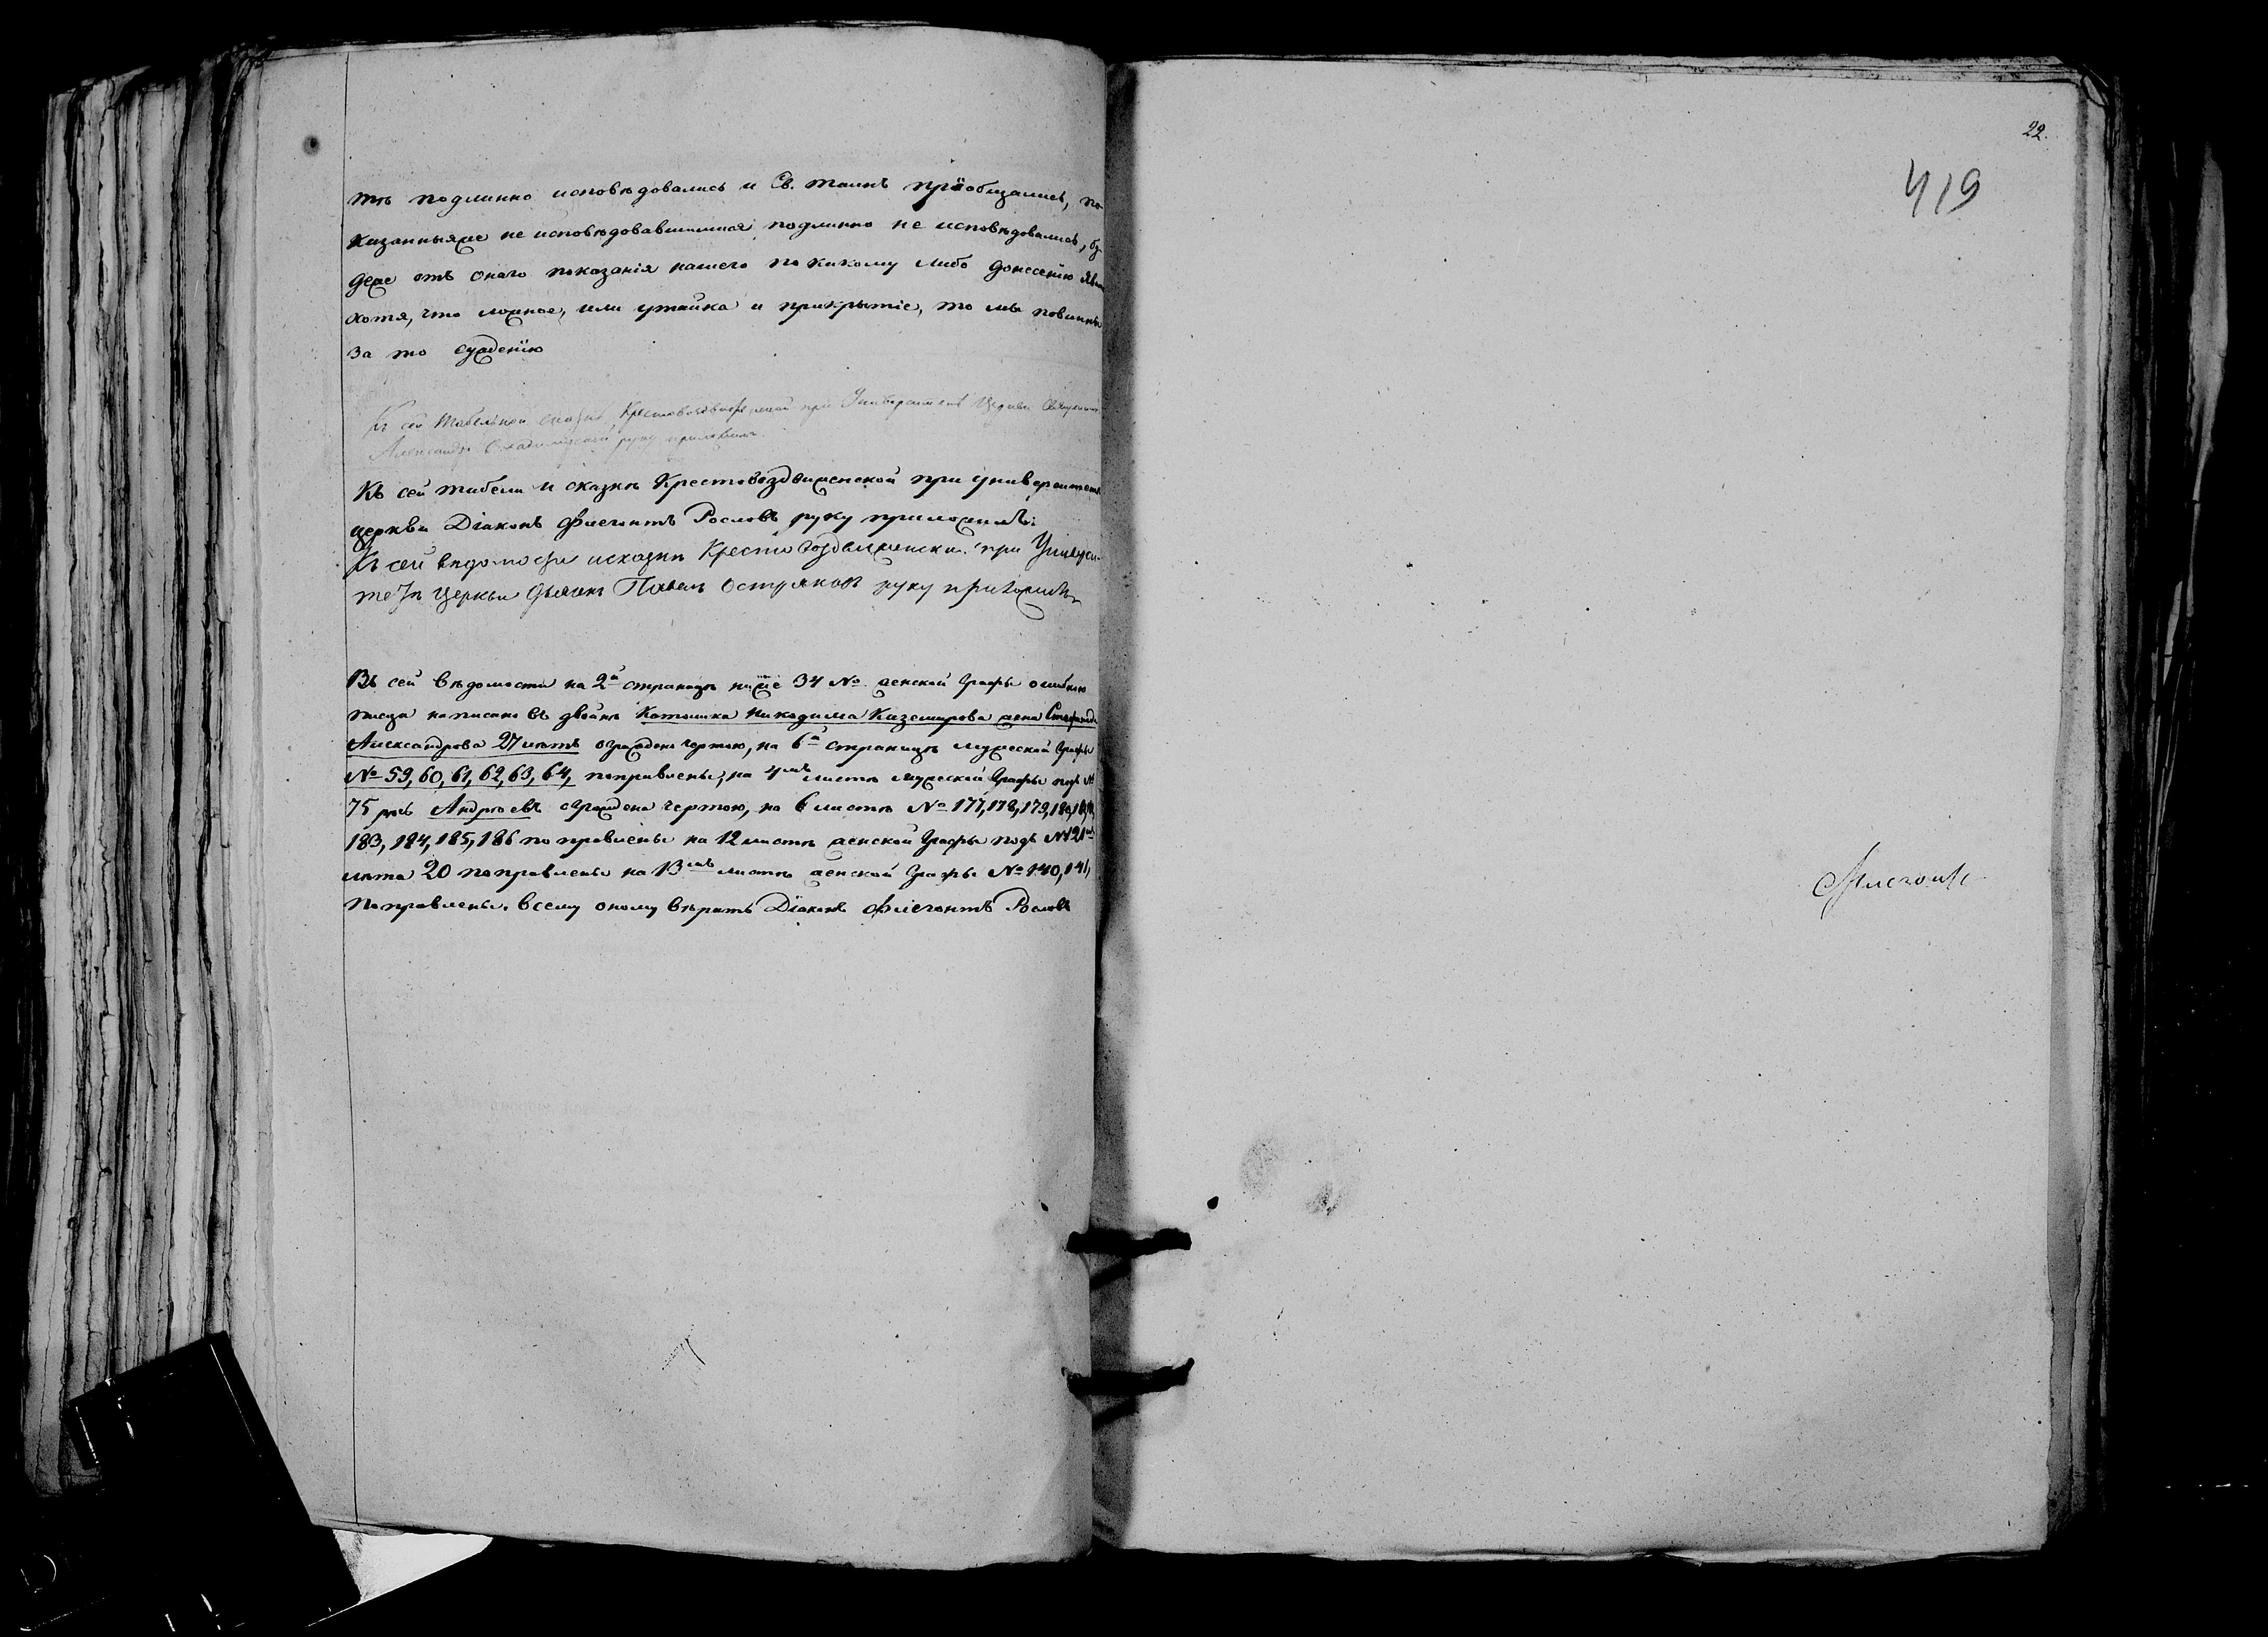 тѣ подлинно исповѣдовались и Св. таинъ пріобщались, по-
казанныеже не исповѣдовавшимися подлинно не исповѣдовались, бу-
деже отъ онаго показанія нашего по какому либо донесенію явит
хотя, что ложное, или утайка и прикрытіе, то мы повинны
за то сужденію
Къ сей табельной сказкѣ, Крестовоздвиженской при Университетѣ Церкви Священникъ
Александръ Владимірскій руку приложилъ.
Къ сей табели и сказкѣ Крестовоздвиженской при университетѣ
церкви Діаконъ Флегонтъ Рословъ руку приложилъ
Къ сей ведомости исказки Крестовоздвиженски. при Универси-
тетѣ церкви Дьячекъ Павелъ Остряковъ руку приложилъ
Въ сей вѣдомости на 2й страницѣ ниже 34 № женской Графы ошибкою
писца написано въ двойнѣ Никодима Каземирова жена Стефанида
Александрова 27 лѣтъ ограждена чертою, на 6й страницѣ мужеской Графы
№ 59, 60, 61, 62, 63, 64, поправлены, на 4мъ листѣ мужеской Графы подъ №
75 Андрѣевъ ограждена чертою, на 6 листѣ № 177, 178, 179, 180, 181, 182,
183, 184, 185, 186 поправлены на 12 листѣ женской Графы подъ № 21мъ
лѣта 20 поправлены на 13мъ листѣ женской Графы № 140, 141,
поправлены. всему оному вѣрить Діаконъ Флегонтъ Рословъ
22.
419
Флегонтъ